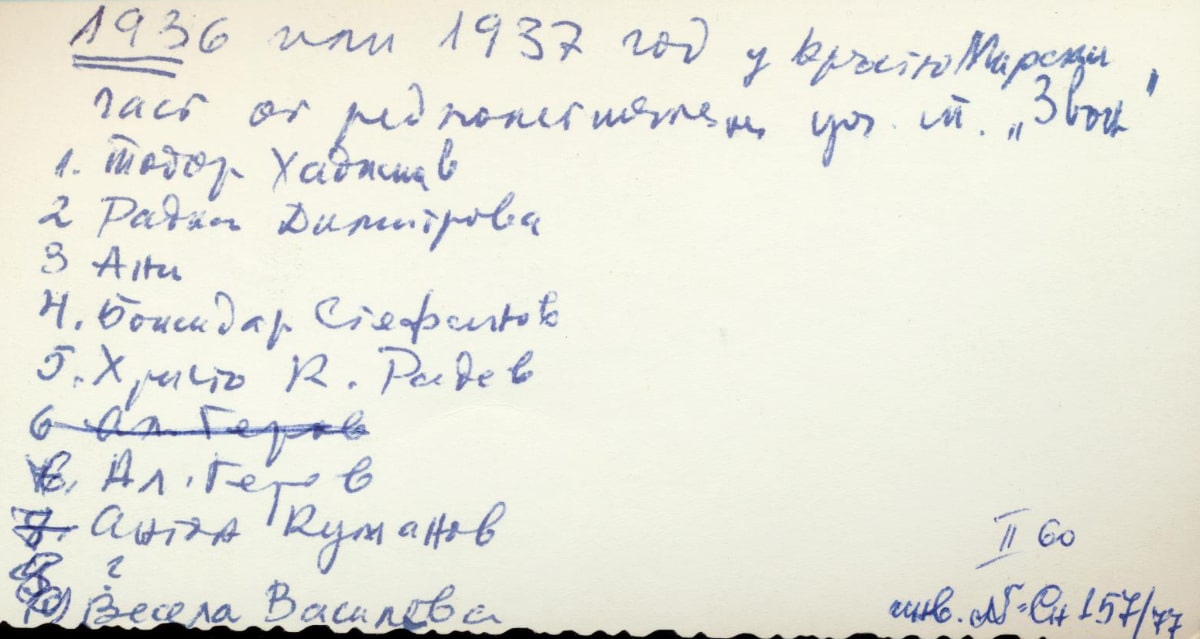 1936 или 1937 год у Кръстю Марски
част от редколегията на уч. в. „Звън"
1. Тодор Хаджиев
2 Радка Димитрова
3 Ани
4. Божидар Стефанов
5. Христо К. Радев
6 Ал. Геров
6. Ал. Геров
7. Антон Куманов
8 ?
Весела Василева
II 60
инв. № Сн 157/77